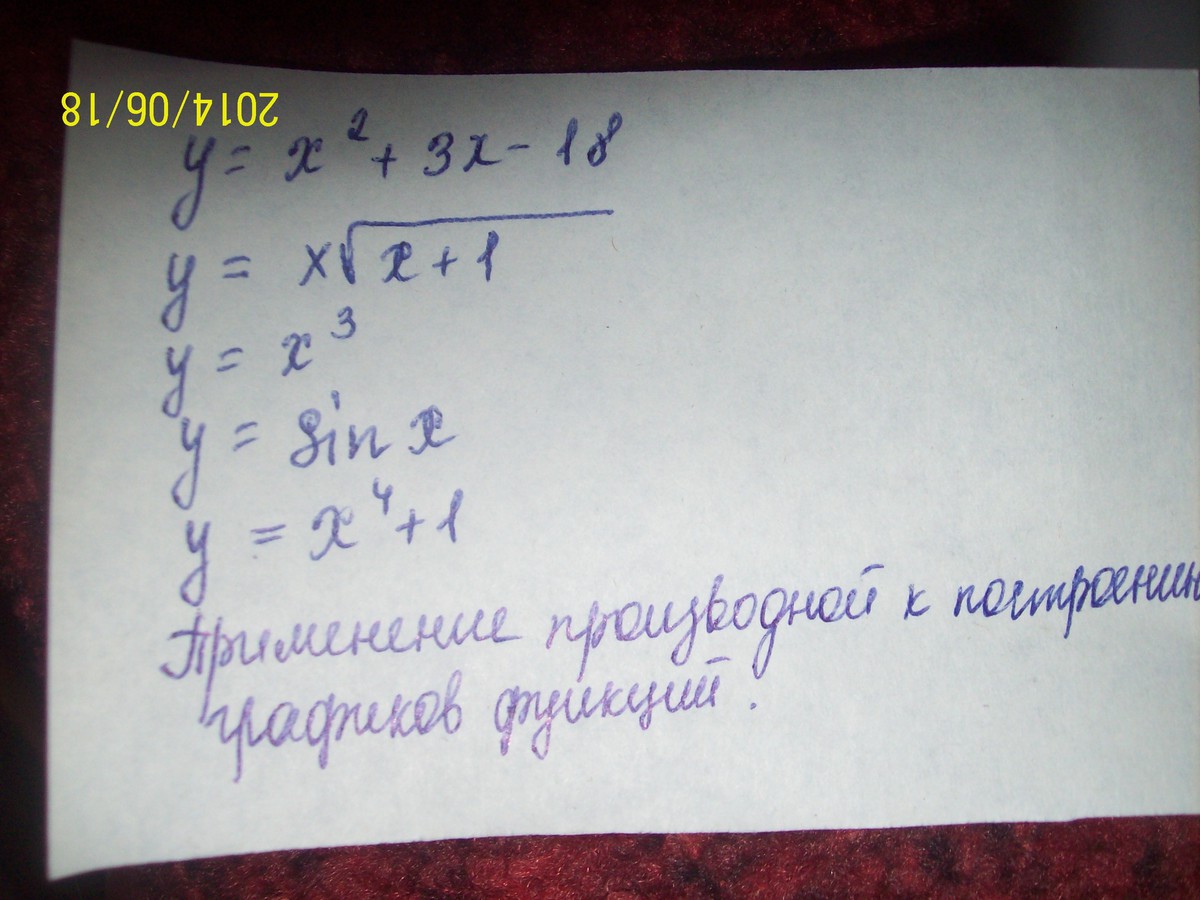 2014/06/18
y = x² + 3x - 18
y = x√x+1
y = x³
y = sin x
y = x⁴+1
Применение производной к построению
графиков функций.